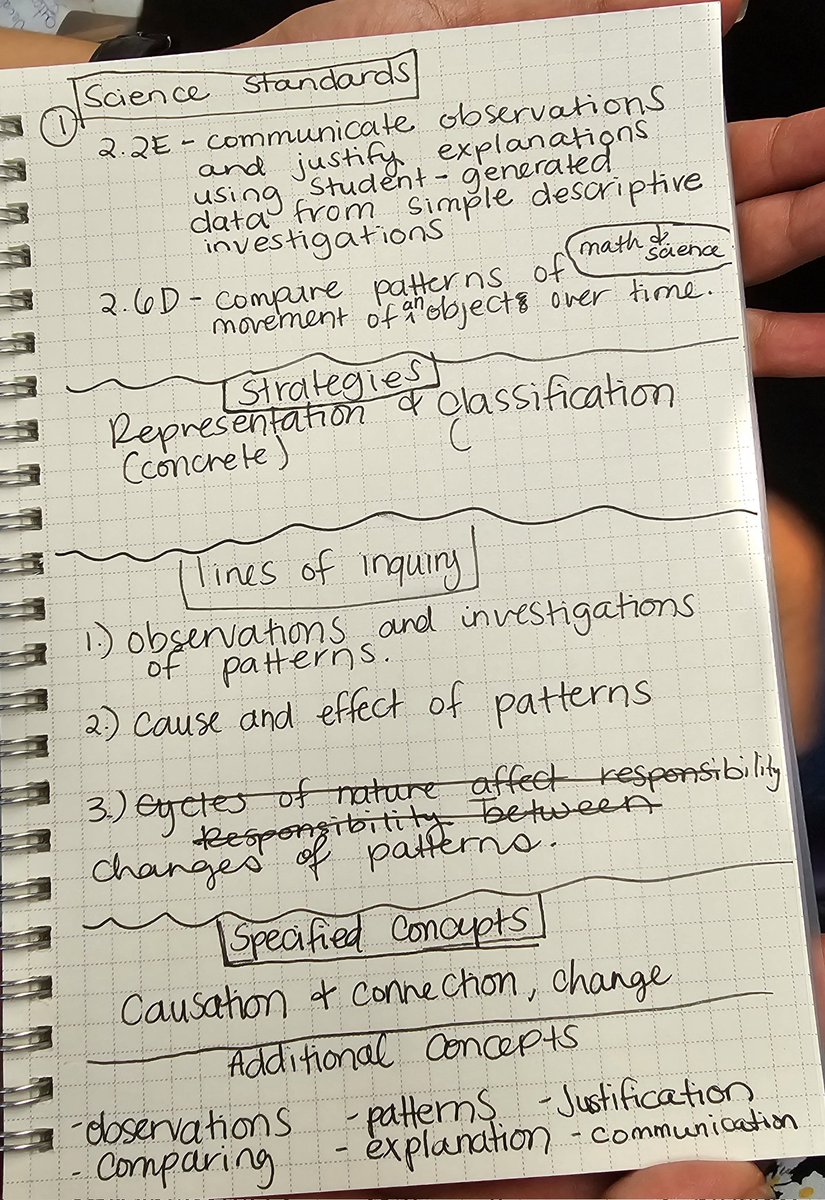 ① Science Standards
2.2E - communicate observations
and justify explanations
using student-generated
data from simple descriptive
investigations
math & science
2.6D - compare patterns of
movement of an object over time.
Strategies
Representation & Classification
(concrete) (
lines of inquiry
1.) observations and investigations
of patterns.
2.) cause and effect of patterns
3.) Cycles of nature affect responsibility
Responsibility between
changes of patterns.
Specified Concepts
Causation & connection, change
Additional Concepts
-observations -patterns -Justification
-comparing -explanation -communication